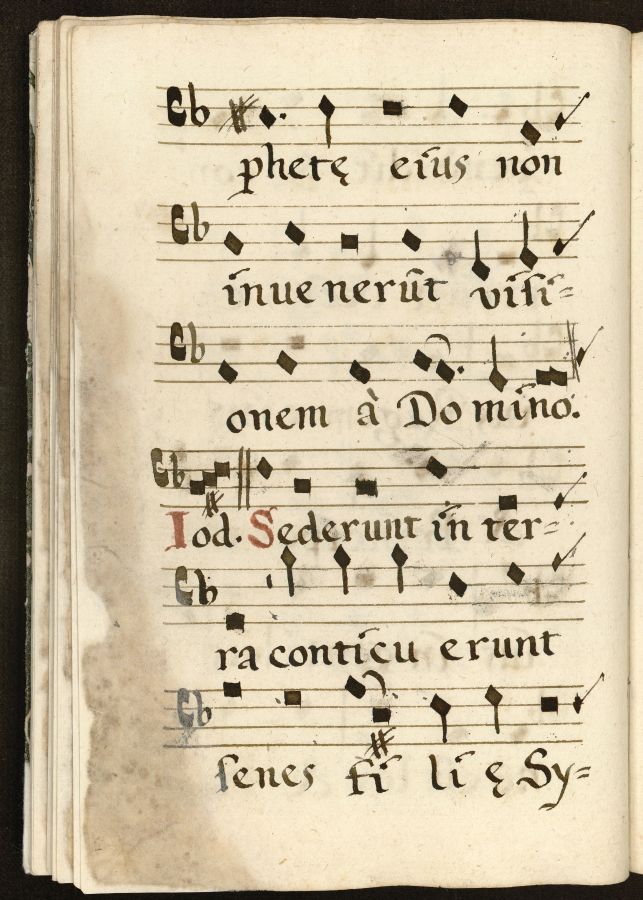 phetę eius non
inuenerūt visi=
onem à Domino.
Iod. Sederunt in ter=
ra conticuerunt
senes filię Sy=